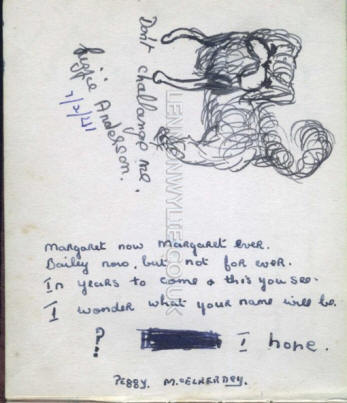 Don't challange me.
Reggie Anderson.
7/2/41
LENNANWYLIE.CO.UK
Margaret now Margaret ever.
Bailey now, but not for ever.
In years to come & this you see.
I wonder what your name will be.
? I hope.
PEGGY. McELHERNEY.